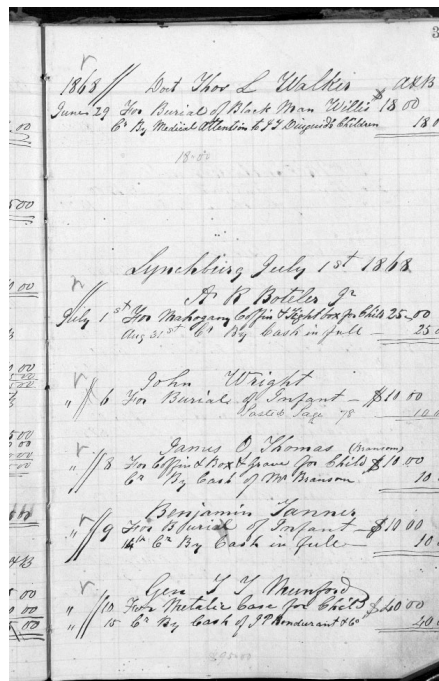 3
1868 // Doct Thos L Walker
June 29 For Burial of Black Man Willis $ 18 00
Cr By Medical Attention to Diuguids Children 18 0
18.00
Lynchburg July 1st 1868
A R Boteler Jr
July 1st For Mahogany Coffin & Tight box for Child 25-00
Aug 31st Cr By Cash in full — 25 0
John Wright
" // 6 For Burial of Infant — $10 00
Page 78 10 0
James O Thomas (Bransom)
" // 8 For Coffin & Box & grave for Child $10.00
Cr By Cash of Mr Bransom 10
Benjamin Tanner
" // 9 For Burial of Infant — $10 00
14th Cr By Cash in full — 10 0
Gen T T Munford
" // 10 For Metalic Case for Child $40 00
" 15 Cr By Cash of J P Bondurant & Co 40 0